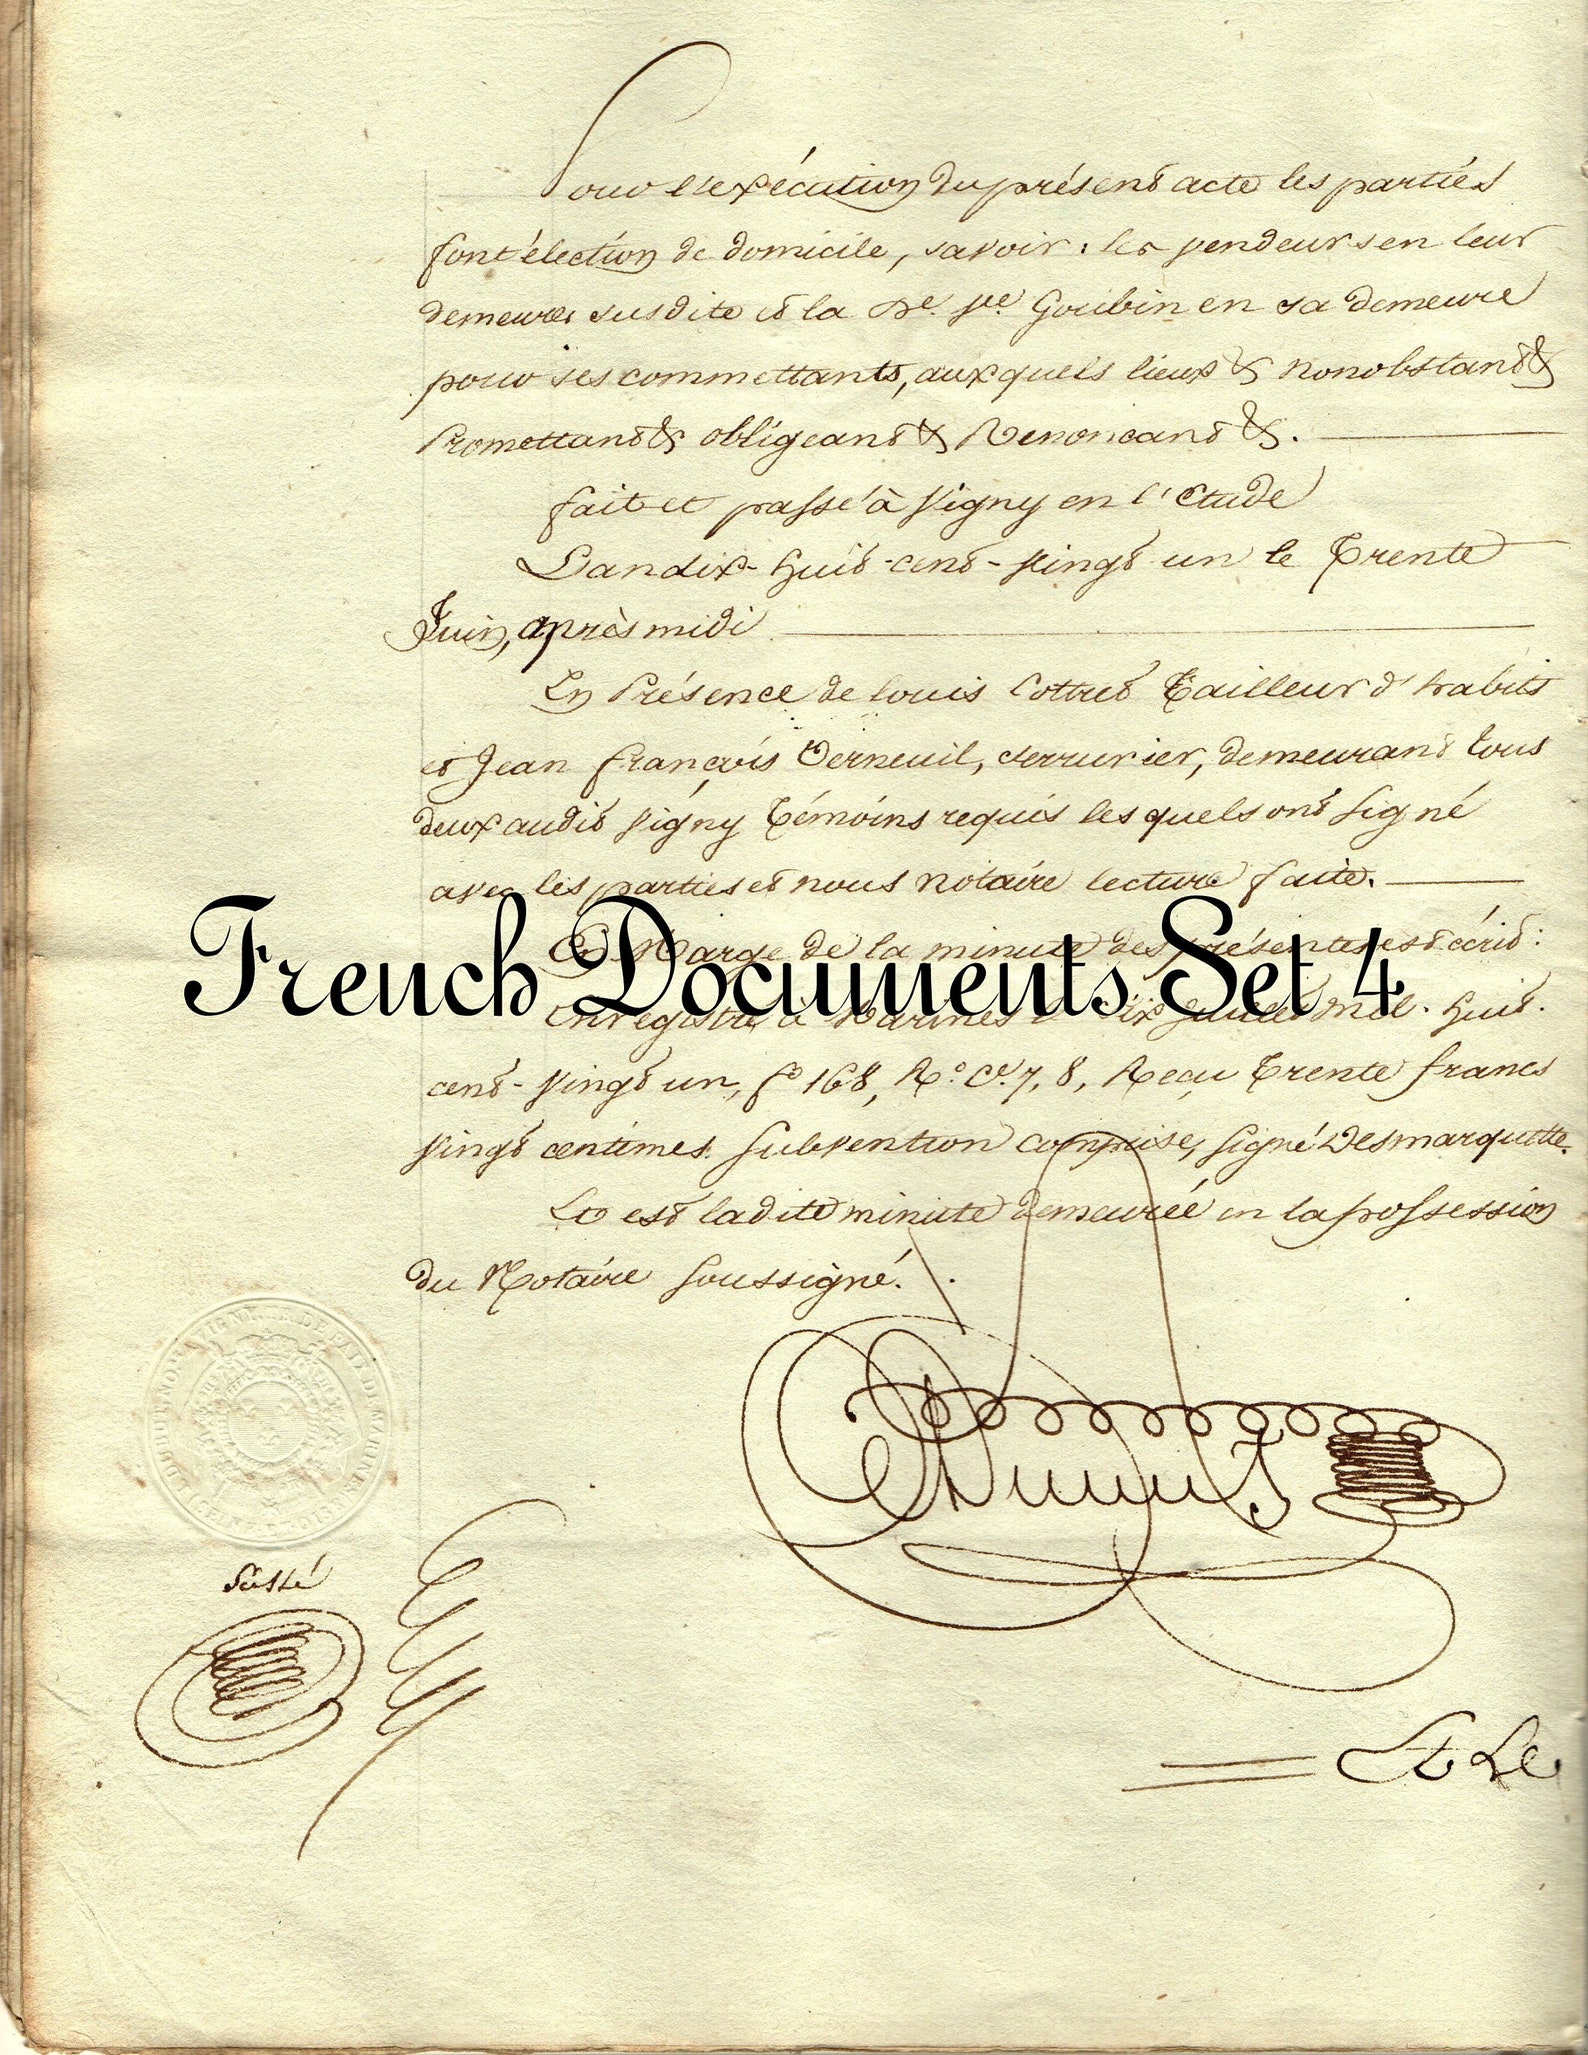 Pour l'exécution du présent acte les parties
font élection de domicile, savoir: les vendeurs en leur
demeure susdite et la De. Ve. Goubin en sa demeure
pour ses commettants, auxquels lieux & nonobstant &
Promettant & obligeant & Renonçant &.
fait et passé à Vigny en l'Etude
L'an dix-huit-cent-vingt un le Trente
Juin, après midi
En Présence de Louis Cottret Tailleur d'habits
et Jean françois Verneuil, serrurier, demeurant tous
deux audit Vigny Témoins requis lesquels ont signé
avec les parties et nous Notaire lecture faite.
En Marge de la minute des présentes est écrit:
French Documents Set 4
Enregistré à Marines le dix Juillet mil-huit-
cent-vingt un, fo 168, Ro. Ce. 7, 8, Reçu Trente francs
vingt centimes. Subvention comprise, signé Desmarquette.
Et est ladite minute demeurée en la possession
du Notaire soussigné.
Et Le